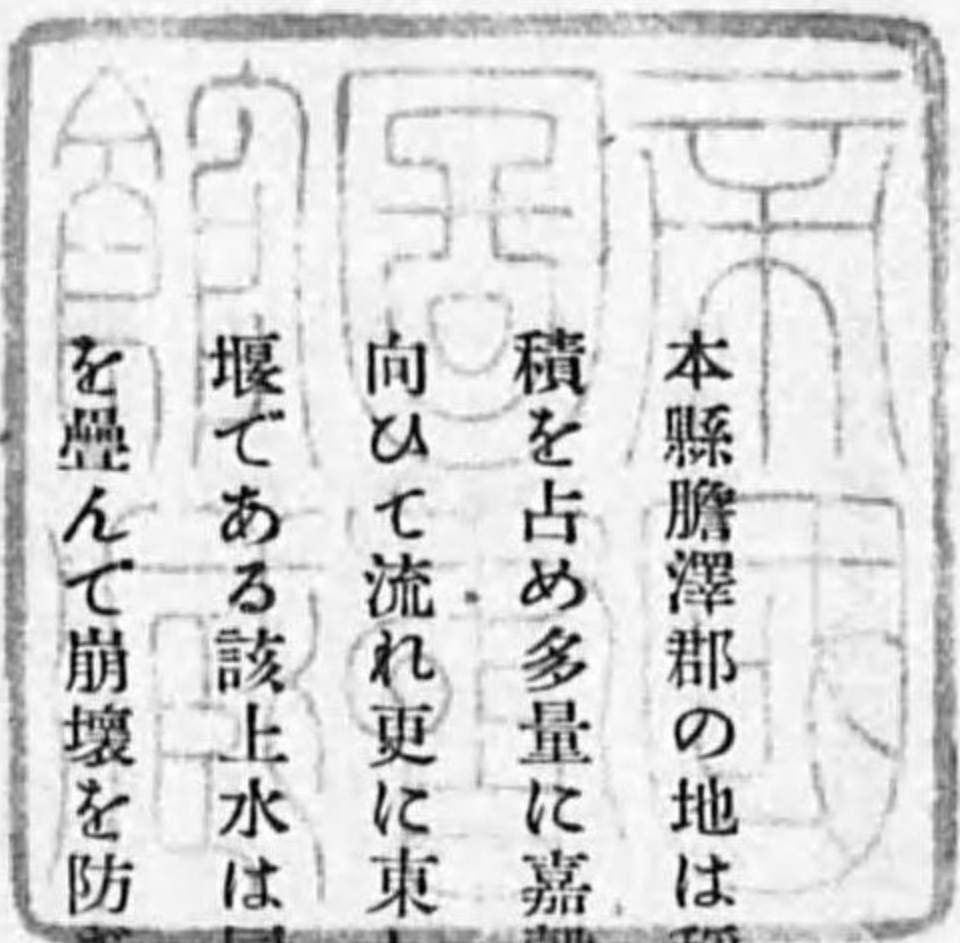 本縣膽澤郡の地は
積を占め多量に嘉
向ひて流れ更に東
堰である該上水は
を疊んで崩壞を防